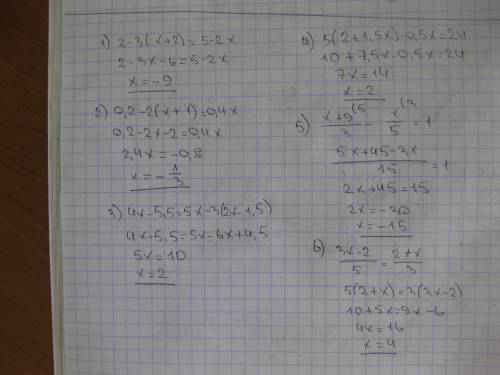 1) 2-3(x+2)=5-2x
2-3x-6=5-2x
x=-9
2) 0,2-2(x+1)=0,4x
0,2-2x-2=0,4x
2,4x=-0,8
x=-1/3
3) 4x-5,5=5x-3(2x-1,5)
4x-5,5=5x-6x+4,5
5x=10
x=2
4) 5(2+1,5x)-0,5x=24
10+7,5x-0,5x=24
7x=14
x=2
5) x+9(5/3 - x(3/5 =1
5x+45-3x/15=1
2x+45=15
2x=-30
x=-15
6) 3x-2/5=2+x/3
5(2+x)=3(3x-2)
10+5x=9x-6
4x=16
x=4